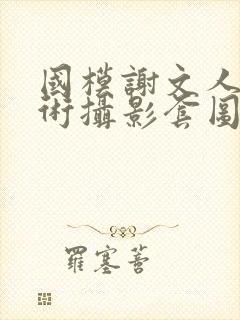 國模謝文人
術攝影套圖
羅塞蒈